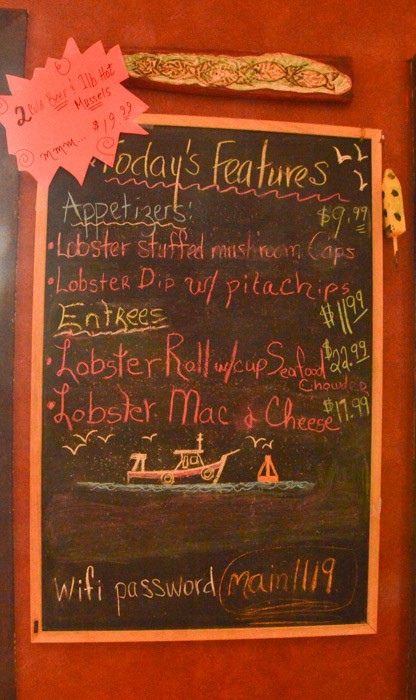 2 Cold Beer & 1lb Hot
Mussels
mmm... $19.99
Today's Features
Appetizers: $9.99
•Lobster stuffed mushroom Caps
•Lobster Dip w/ pita chips
$11.99
Entrees
•Lobster Roll w/cup Seafood $22.99
Chowder
•Lobster Mac & Cheese $17.99
Wifi password main1119